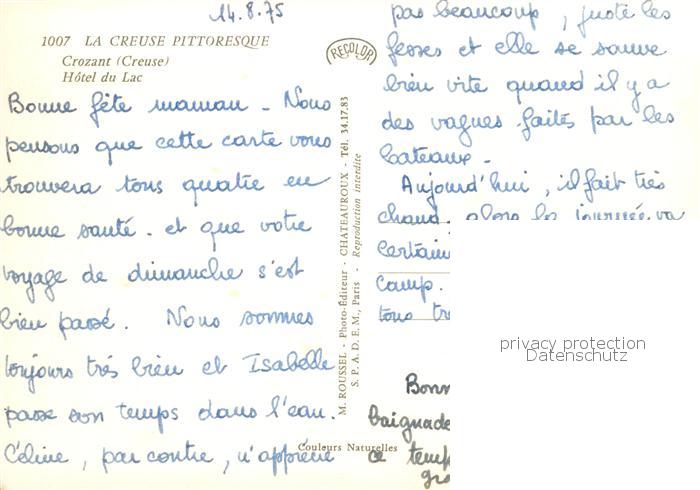 14.8.75
1007 LA CREUSE PITTORESQUE
Crozant (Creuse)
Hôtel du Lac
Bonne fête maman - Nous
pensons que cette carte vous
trouvera tous quatre en
bonne santé. et que votre
voyage de dimanche s'est
bien passé. Nous sommes
toujours très bien et Isabelle
passe son temps dans l'eau.
Céline, par contre, n'apprécie
RECOLOR
M. ROUSSEL - Photo-Éditeur - CHATEAUROUX - Tél. 34.17.83
S.P.A.D.E.M., Paris - Reproduction interdite
Couleurs Naturelles
pas beaucoup, juste les
fesses et elle se sauve
bien vite quand il y a
des vagues faites par les
bateaux -
Aujourd'hui, il fait très
chaud. alors la journée va
certain
camp.
tous
Bonn
baignade
ce temp
gro
privacy protection
Datenschutz